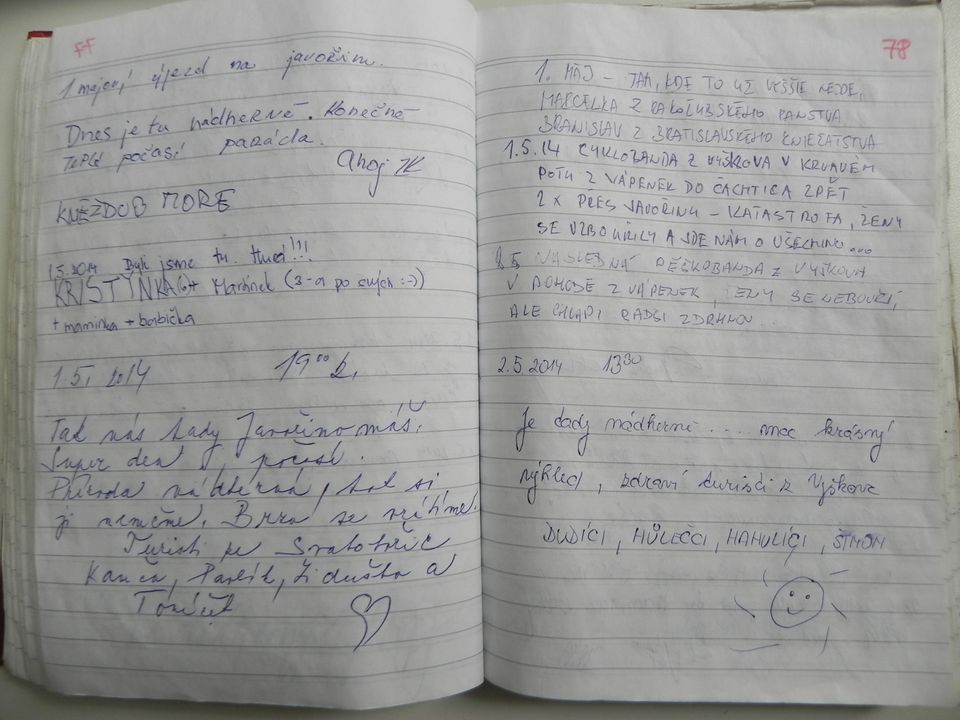 77
1 májový výjezd na javořinu.
Dnes je tu nádherně. Konečně
Teplé počasí paráda.
Ahoj
KNĚZDUB MORE
1.5.2014 Byli jsme tu. hned!!!
KRISTÝNKA(6)+ Martínek (3-a po svých :-)
+ maminka + babička
1.5. 2014 19⁰⁰ h.
Tak nás tady Javořino máš.
Super den, počasí.
Příroda nádherná, tak si
ji nenične. Brzo se vrátíme.
Turisti ze Svatobořic
Kanča, Pavlík, Liduška a
Toníček
78
1. MÁJ – TAM, KDE TO UŽ VYŠŠIE NEJDE,
MARCELKA Z PANSTVA
BRANISLAV Z BRATISLAVSKÉHO KNIEŽATSTVA
1.5.14 CYKLOBANDA Z VYŠKOVA V KRVAVÉM
POTU Z VÁPENEK DO ČACHTIC A ZPĚT
2 x PŘES JAVOŘINU – KATASTROFA, ŽENY
SE VZBOUŘILY A JDE NÁM O VŠECHNO...
NÁSLEDNÁ PĚŠKOBANDA Z VYŠKOVA
V POHODĚ Z VÁPENEK, ŽENY SE NEBOUŘÍ,
ALE CHLAPI RADŠI ZDRHNOU...
2.5.2014 13³⁰
Je tady nádherně .... moc krásný
výhled, zdraví turisti z Vyškova
DUDÍCI, HŮLEČCI, HANULÍCI, ŠIMON